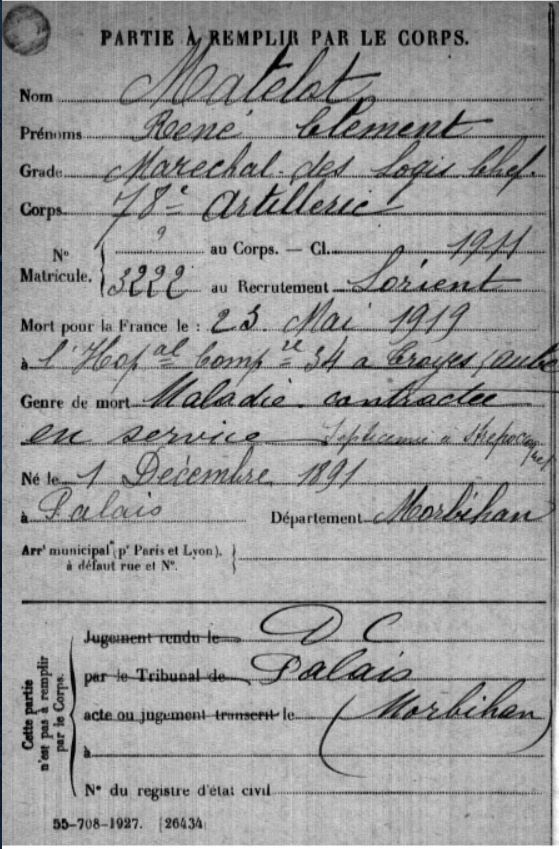 PARTIE À REMPLIR PAR LE CORPS.
Nom Matelot
Prénoms René Clément
Grade Marechal-des Logis Chef.
Corps 78e Artillerie
N° Maticule. { ? au Corps. — Cl. 1911
3222 au Recrutement Lorient
Mort pour la France le : 23 Mai 1919
à l'Hopal Compre 34 a Troyes (aube
Genre de mort Maladie contractée
en service Septicemie a Streptocoques
Né le 1 Décembre 1891
à Palais Département Morbihan
Arrt municipal (pr Paris et Lyon), à défaut rue et N°. }
Cette partie n'est pas à remplir par le Corps. {
Jugement rendu le D C
par le Tribunal de Palais
acte ou jugement transcrit le (Morbihan)
à
N° du registre d'état civil
55-708-1927. [26434